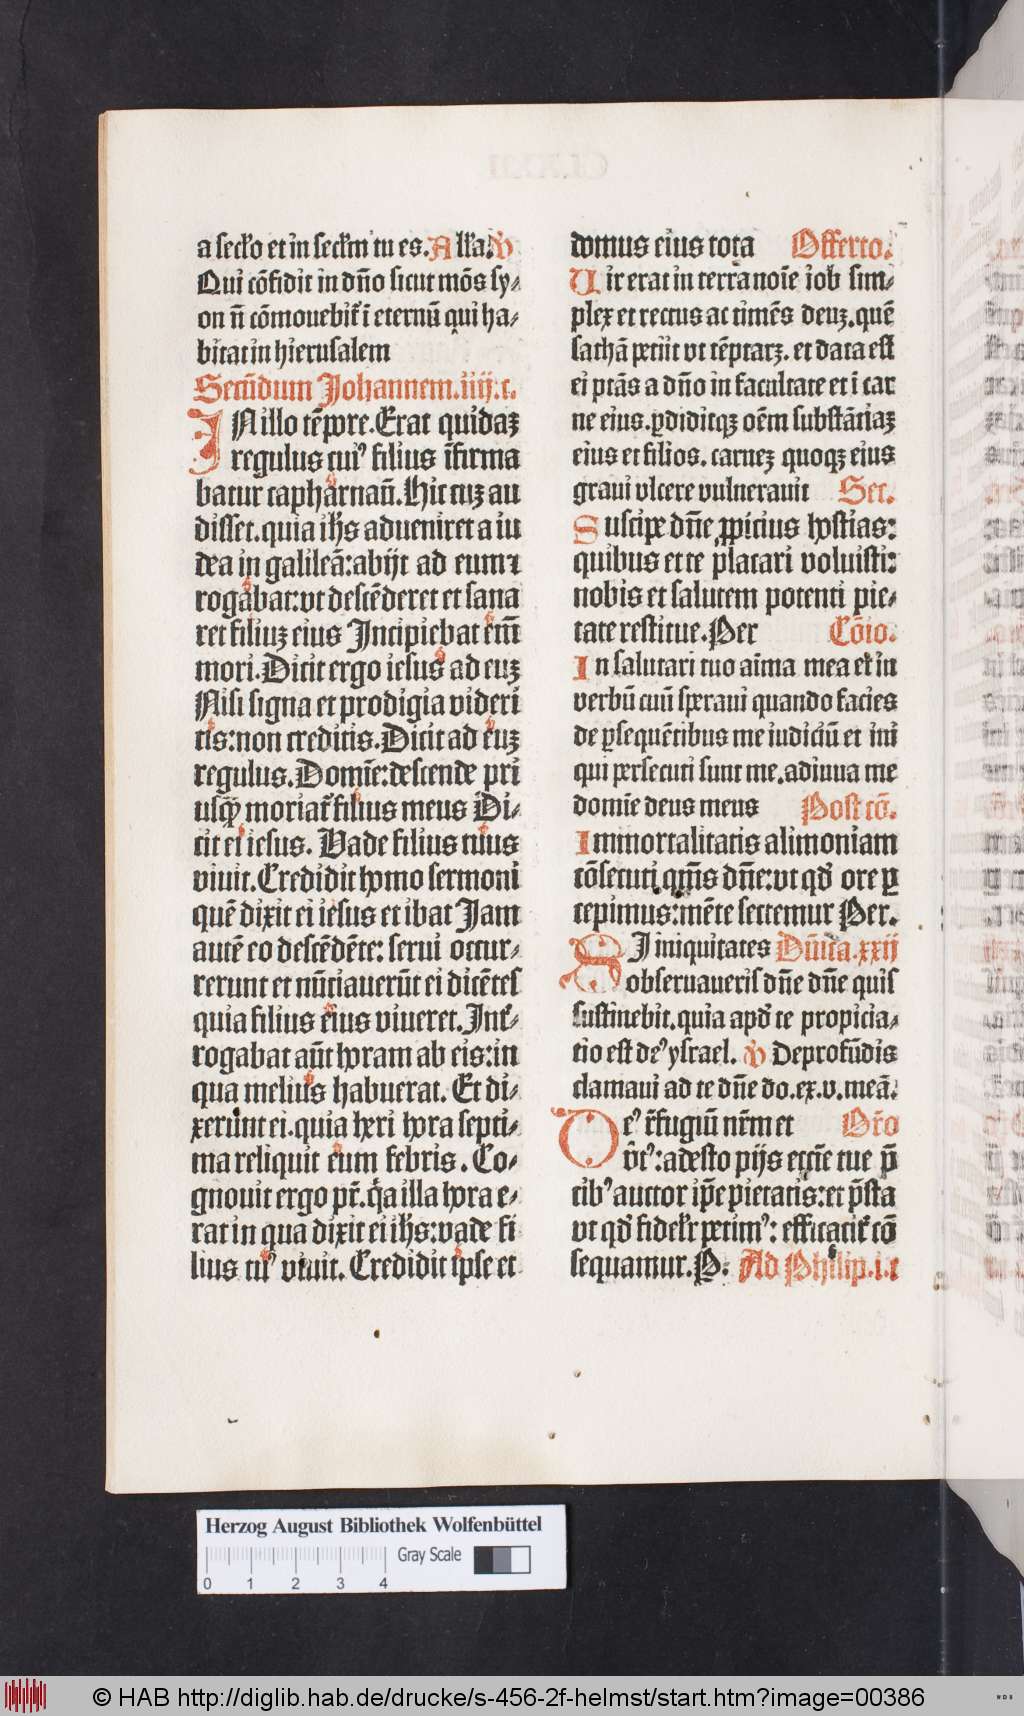 a seclo et in seclm tu es. Alla. ꝟ
Qui cōfidit in dn̄o sicut mōs sy-
on n̄ cōmouebit̉ ī eternū qui ha-
bitat in hierusalem
Secūdum Johannem. iiij. c.
IN illo tēpore. Erat quidaꝫ
regulus cui᷒ filius īfirma
batur capharnaū. Hic cuꝫ au
disset. quia ih̄s adueniret a iu
dea in galileā: abijt ad eum ⁊
rogabat: vt descēderet et sana
ret filiuꝫ eius Incipiebat eni᷑m
mori. Dicit ergo iesus ad euꝫ
Nisi signa et prodigia videri
tis: non creditis. Dicit ad euꝫ
regulus. Domīe: descende pri
usqꝫ moriat̉ filius meus Di-
cit ei iesus. Vade filius tuus
viuit. Credidit homo sermoni
quē dixit ei iesus et ibat Jam
autē eo descēdēte: serui occur-
rerunt et nūciauerūt ei dicētes
quia filius eius viueret. Int̉-
rogabat aūt horam ab eis: in
qua melius habuerat. Et di-
xerunt ei. quia heri hora septi-
ma reliquit eum febris. Co-
gnouit ergo pr̄. q̄a illa hora e-
rat in qua dixit ei ih̄s: vade fi
lius tu᷒ viuit. Credidit ipse et
domus eius tota Offerto.
Vir erat in terra noīe iob sim-
plex et rectus ac timēs deuꝫ. quē
sathā petijt vt tēptaꝫ. et data est
ei ptās a dn̄o in facultate et ī car
ne eius. ꝑdiditqꝫ oēm substātiaꝫ
eius et filios. carneꝫ quoqꝫ eius
graui vlcere vulnerauit Sec.
Suscipe dn̄e ꝓpicius hostias:
quibus et te placari voluisti:
nobis et salutem potenti pie-
tate restitue. Per Cōio.
In salutari tuo aīma mea et in
verbū tuū speraui quando facies
de ꝑsequētibus me iudiciū et ini
qui persecuti sunt me. adiuua me
domīe deus meus Post cō.
Immortalitatis alimoniam
cōsecuti. qm̄s dn̄e: vt qd̄ ore ꝑ
cepimus: mēte sectemur Per.
SI iniquitates Dūica. xxij
obseruaueris dn̄e dn̄e quis
sustinebit. quia apd̄ te propicia-
tio est de᷒ ysrael. ꝟ De profūdis
clamaui ad te dn̄e do. ex. v. meā.
De᷒ r̄fugiū nr̄m et Or̄o
v̄t᷒: adesto pijs eccl̄e tue p̄
cib᷒ auctor ip̄e pietatis: et p̄sta
vt qd̄ fidelr̄ petim᷒: efficacit̉ cō
sequamur. P. Ad Philip. i. c
Herzog August Bibliothek Wolfenbüttel
Gray Scale
0 1 2 3 4
© HAB http://diglib.hab.de/drucke/s-456-2f-helmst/start.htm?image=00386